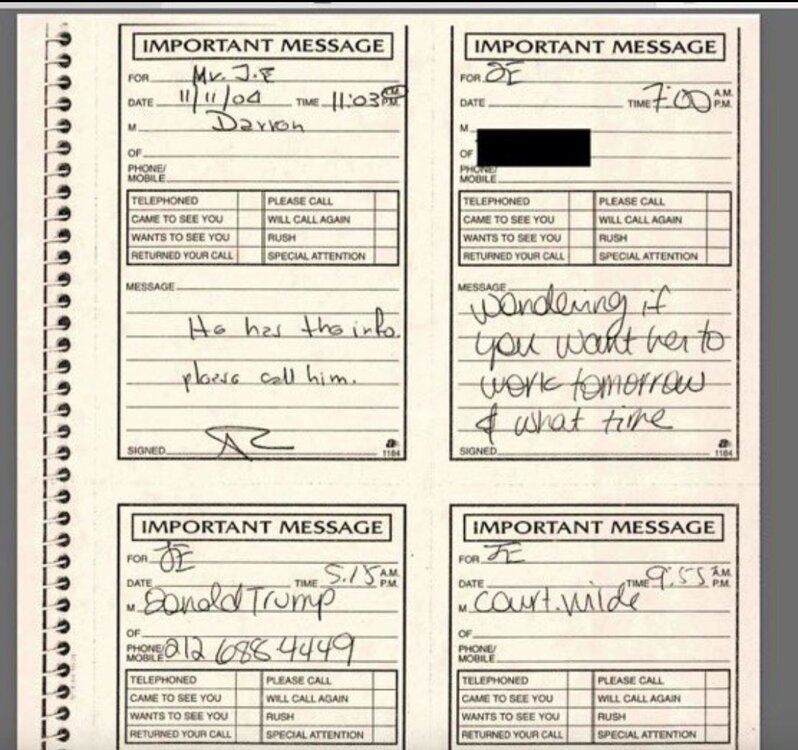 IMPORTANT MESSAGE
FOR Mr. J.E
DATE 11/11/04 TIME 11:03 A.M. P.M.
M Darren
OF
PHONE/
MOBILE
TELEPHONED PLEASE CALL
CAME TO SEE YOU WILL CALL AGAIN
WANTS TO SEE YOU RUSH
RETURNED YOUR CALL SPECIAL ATTENTION
MESSAGE
He has the info.
please call him.
SIGNED
1184
IMPORTANT MESSAGE
FOR JE
DATE TIME 7:00 A.M. P.M.
M
OF
PHONE/
MOBILE
TELEPHONED PLEASE CALL
CAME TO SEE YOU WILL CALL AGAIN
WANTS TO SEE YOU RUSH
RETURNED YOUR CALL SPECIAL ATTENTION
MESSAGE
wondering if
you want her to
work tomorrow
& what time
SIGNED
1184
IMPORTANT MESSAGE
FOR JE
DATE TIME 5:15 A.M. P.M.
M Donald Trump
OF
PHONE/
MOBILE 212 688-4449
TELEPHONED PLEASE CALL
CAME TO SEE YOU WILL CALL AGAIN
WANTS TO SEE YOU RUSH
RETURNED YOUR CALL SPECIAL ATTENTION
IMPORTANT MESSAGE
FOR JE
DATE TIME 9:55 A.M. P.M.
M Court.
OF
PHONE/
MOBILE
TELEPHONED PLEASE CALL
CAME TO SEE YOU WILL CALL AGAIN
WANTS TO SEE YOU RUSH
RETURNED YOUR CALL SPECIAL ATTENTION